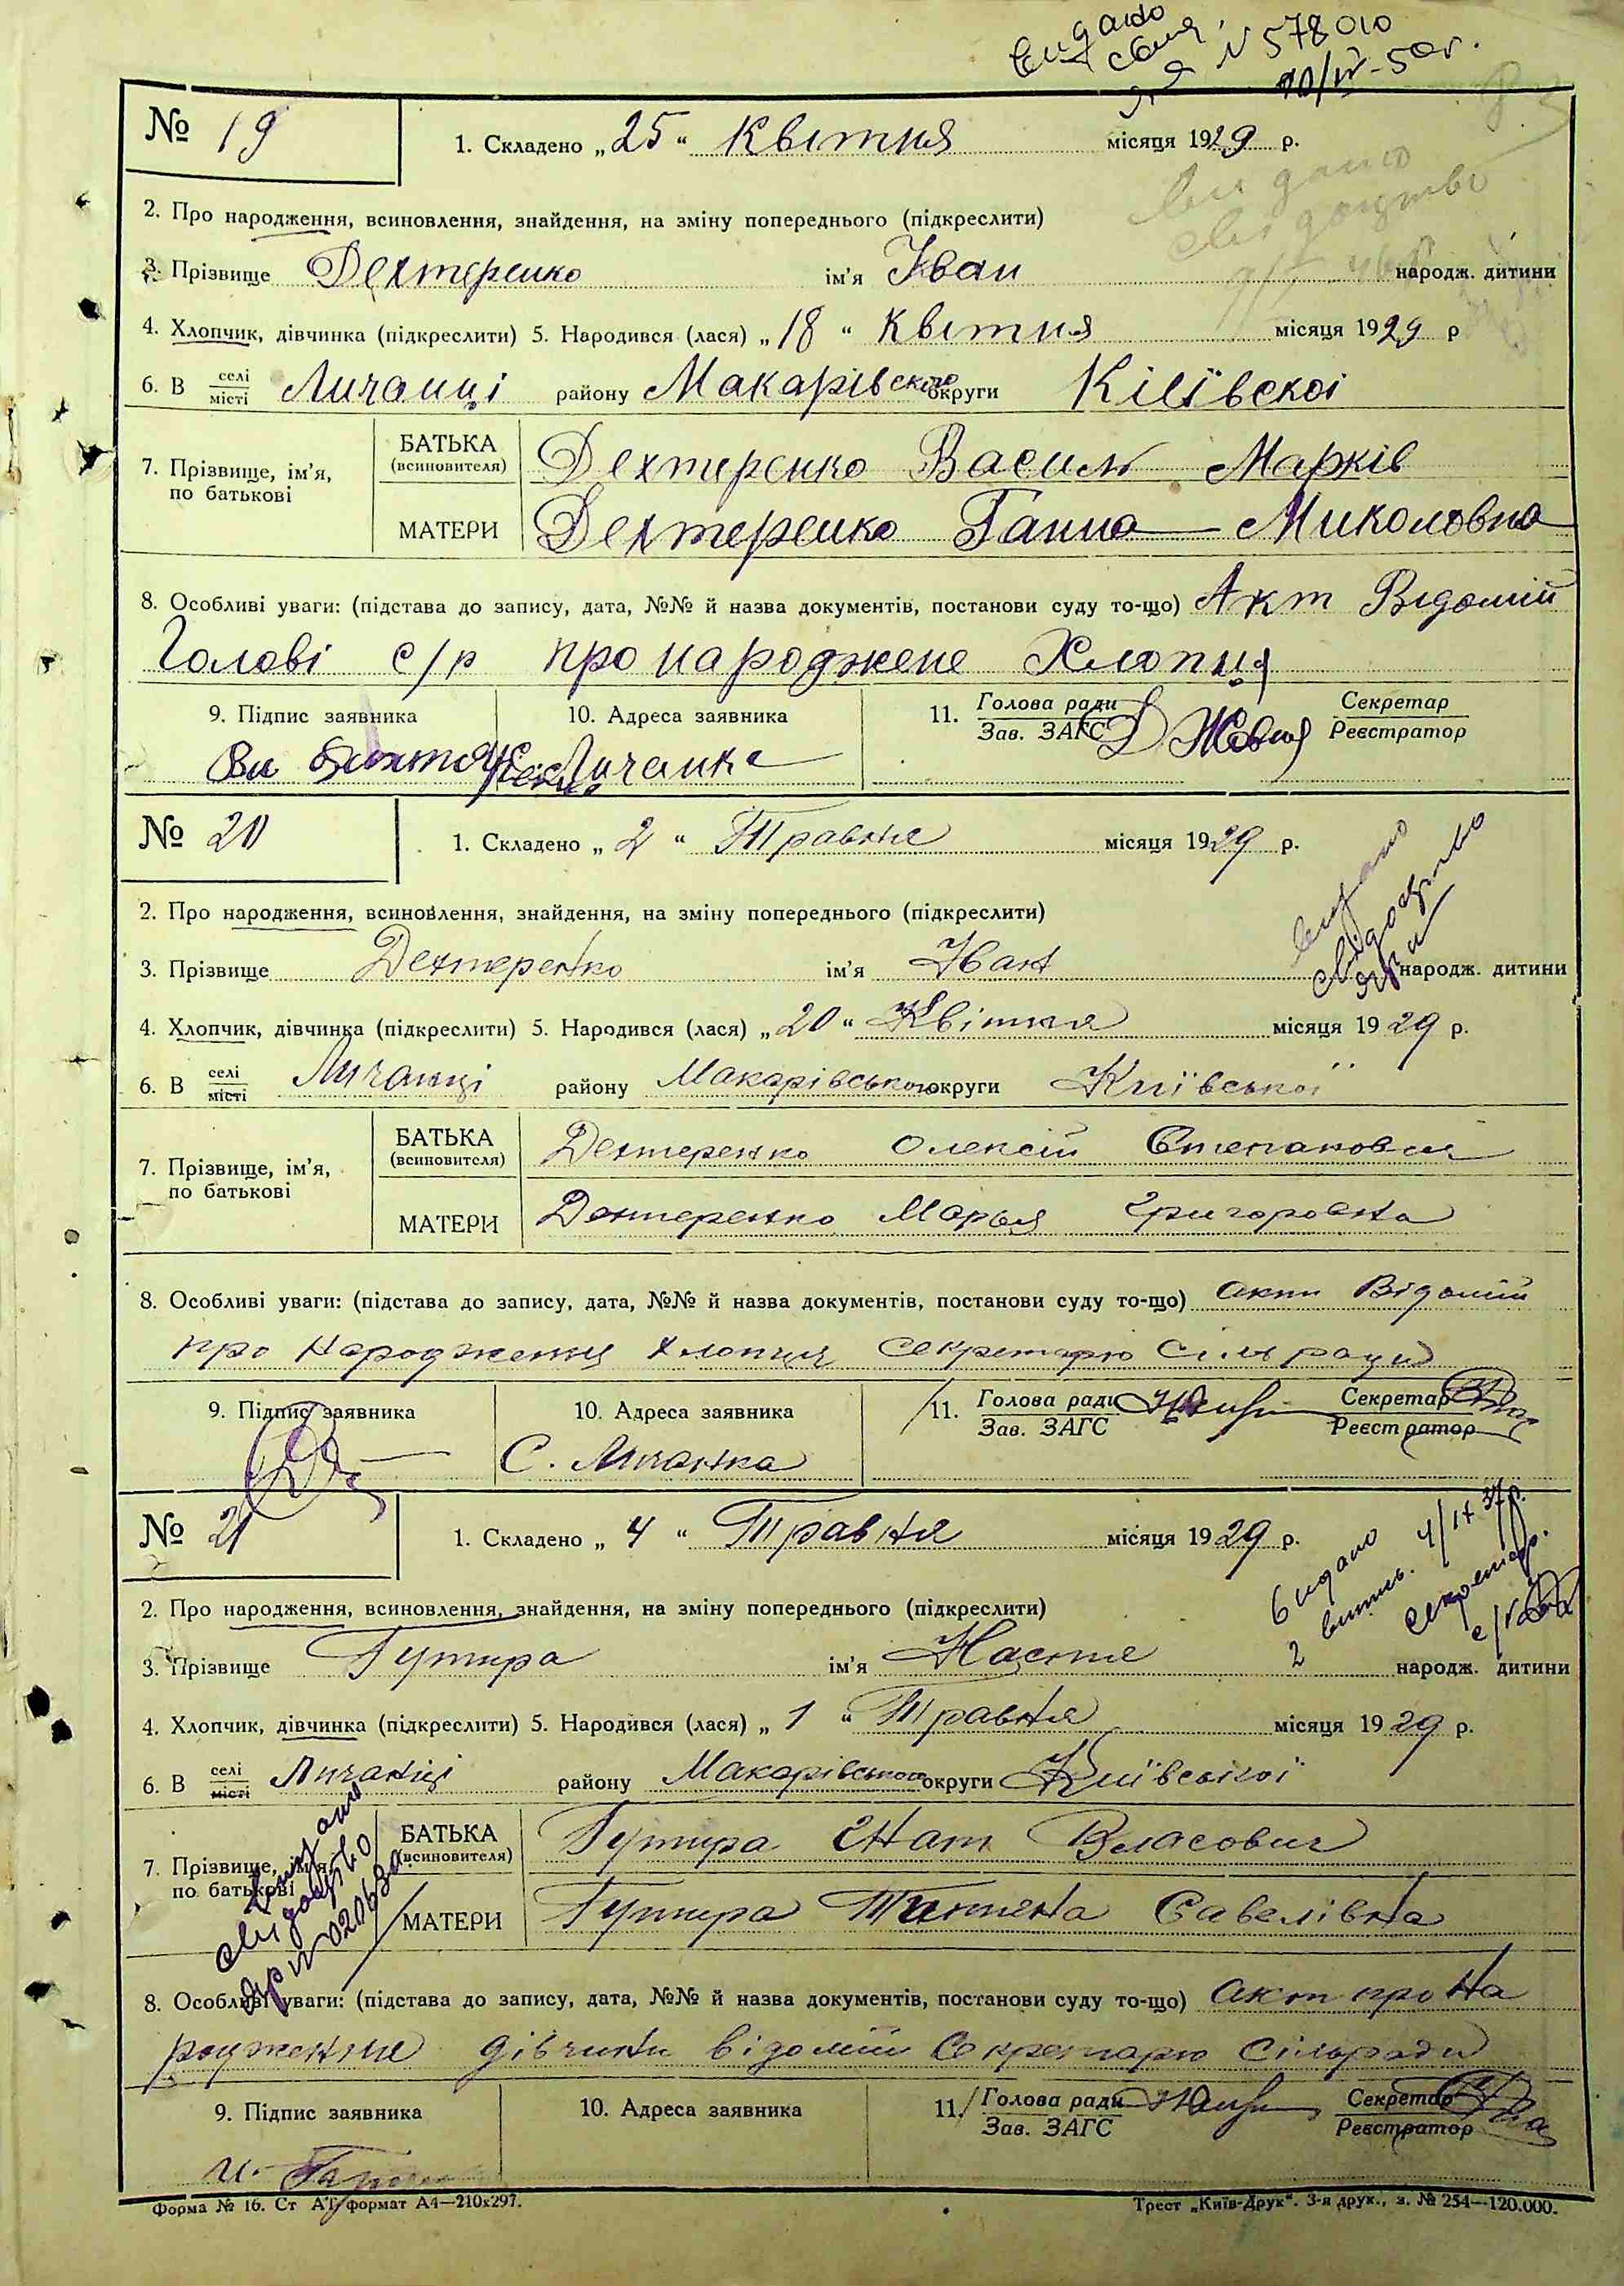 видано
свид.
№ 578010
10/IV-50г.
№ 19
1. Складено „25" Квітня місяця 1929 р.
видано
свидоцтво
2. Про народження, всиновлення, знайдення, на зміну попереднього (підкреслити)
3. Прізвище Дехтеренко ім'я Іван народж. дитини
4. Хлопчик, дівчинка (підкреслити) 5. Народився (лася) „18" Квітня місяця 1929 р
6. В селі/місті Личанці району Макарівського округи Кіівскоі
7. Прізвище, ім'я, по батькові
БАТЬКА (всиновителя) Дехтеренко Василь Марків
МАТЕРИ Дехтеренко Ганна Миколовна
8. Особливі уваги: (підстава до запису, дата, №№ й назва документів, постанови суду то-що) Акт Відомий
Голові с/р про народжене Хлопця
9. Підпис заявника 10. Адреса заявника 11. Голова ради Секретар
Зав. ЗАГС Реєстратор
Личанка
№ 20
1. Складено „2" Травня місяця 1929 р.
видано
свідоцтво
2. Про народження, всиновлення, знайдення, на зміну попереднього (підкреслити)
3. Прізвище Дехтеренко ім'я Іван народж. дитини
4. Хлопчик, дівчинка (підкреслити) 5. Народився (лася) „20" Квітня місяця 1929 р.
6. В селі/місті Личанці району Макарівського округи Київської
7. Прізвище, ім'я, по батькові
БАТЬКА (всиновителя) Дехтеренко Олексій Степанович
МАТЕРИ Дехтеренко Марья Григоровна
8. Особливі уваги: (підстава до запису, дата, №№ й назва документів, постанови суду то-що) акт Відомий
про Народження хлопця секретарю сільради
9. Підпис заявника 10. Адреса заявника 11. Голова ради Секретар
Зав. ЗАГС Реєстратор
С. Личанка
№ 21
1. Складено „4" Травня місяця 1929 р.
Видано 4/IX 37р.
витяг. секретар.
с/р
2. Про народження, всиновлення, знайдення, на зміну попереднього (підкреслити)
3. Прізвище Гутира ім'я Настя народж. дитини
4. Хлопчик, дівчинка (підкреслити) 5. Народився (лася) „1" Травня місяця 1929 р.
6. В селі/місті Личанці району Макарівського округи Київської
7. Прізвище, ім'я, по батькові
БАТЬКА (всиновителя) Гутира Гнат Власович
МАТЕРИ Гутира Титяна Савелівна
видано
свидоцтво
№ 020630
8. Особливі уваги: (підстава до запису, дата, №№ й назва документів, постанови суду то-що) акт про На
родження дівчини відомий Секретарю Сільради
9. Підпис заявника 10. Адреса заявника 11. Голова ради Секретар
Зав. ЗАГС Реєстратор
Форма № 16. Ст АТ, формат А4—210x297.
Трест „Київ-Друк". 3-я друк., з. № 254—120.000.